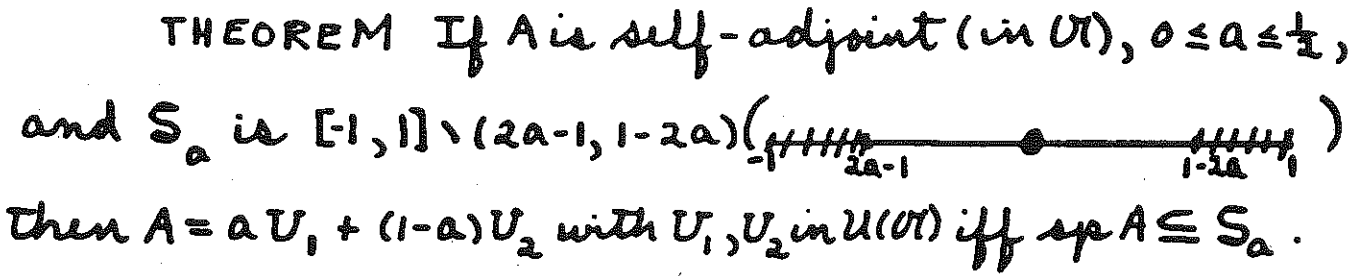 THEOREM If A is self-adjoint (in 𝔄), 0 ≤ a ≤ ½,
and Sₐ is [-1, 1] \ (2a-1, 1-2a) ( -1 2a-1 1-2a 1 )
then A = aU₁ + (1-a)U₂ with U₁, U₂ in U(𝔄) iff sp A ⊆ Sₐ.